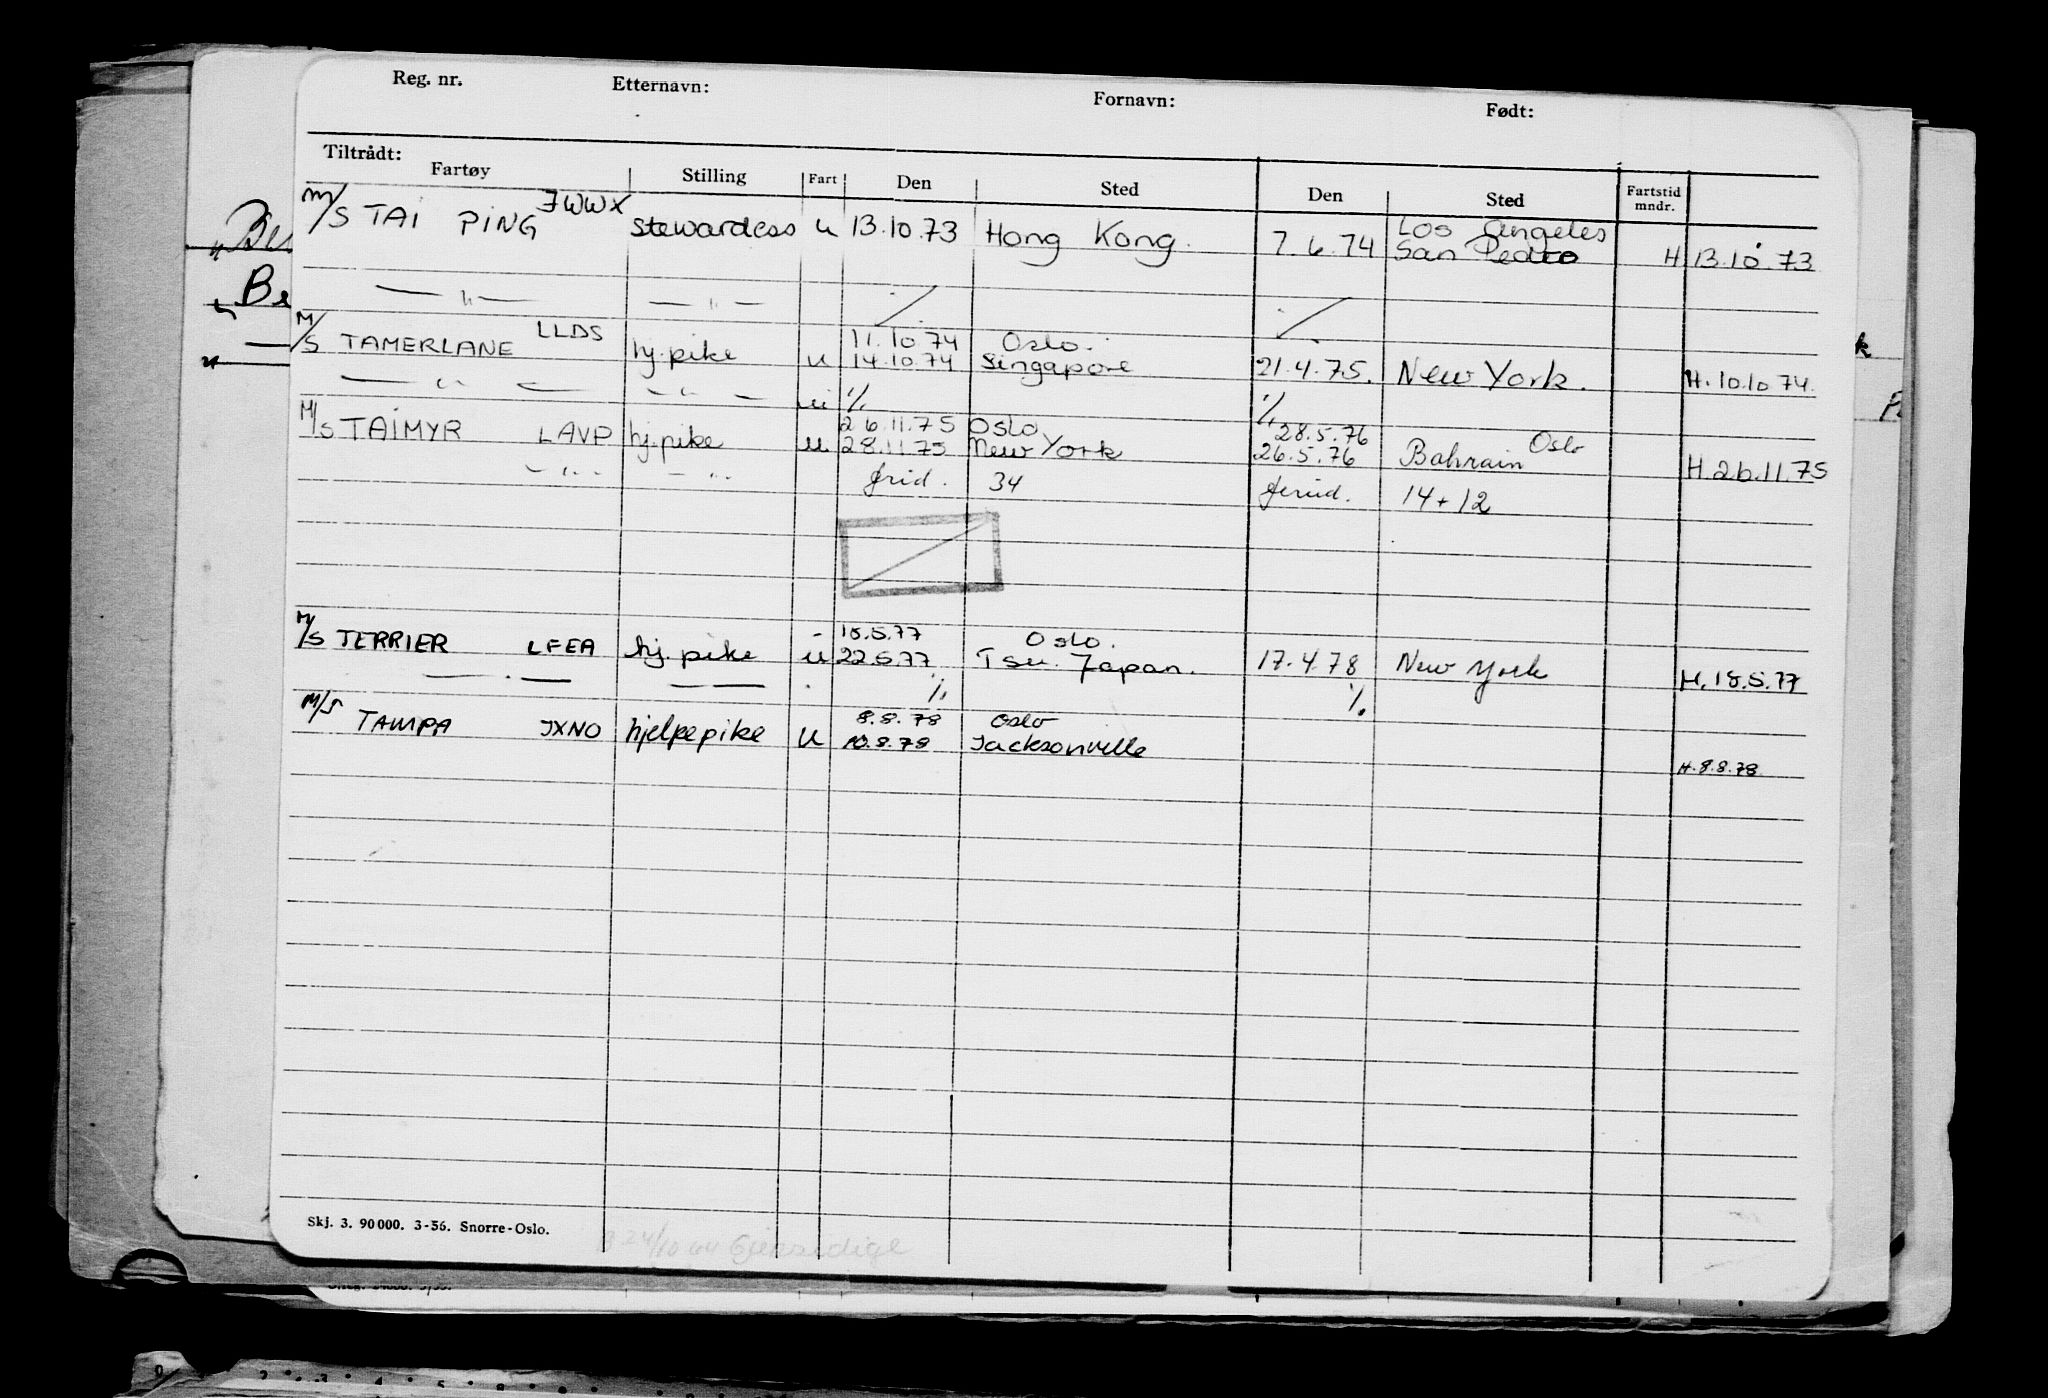 Reg. nr. Etternavn: Fornavn: Født:
Tiltrådt:
Fartøy Stilling Fart Den Sted Den Sted Fartstid mndr.
M/S TAI PING JWWX stewardess u 13.10.73 Hong Kong. 7.6.74 Los Angeles San Pedro H 13.10.73
— " — — " —
M/S TAMERLANE LLDS hj.pike u 11.10.74 Oslo.
14.10.74 Singapore 21.4.75. New York. H.10.10.74.
— " — — " — u % %
M/S TAIMYR LAVP hj.pike u 26.11.75 Oslo 28.5.76 Oslo
28.11.75 New York 26.5.76 Bahrain H.26.11.75
— " — — " — 34 14+12
M/S TERRIER LFEA hj.pike - 18.5.77 Oslo.
u 22.5.77 Tsu. Japan. 17.4.78 New York H.18.5.77
— " — — — % %
M/S TAMPA JXNO hjelpepike u 8.8.78 Oslo
10.8.78 Jacksonville
H.8.8.78
Skj. 3. 90000. 3-56. Snorre-Oslo.